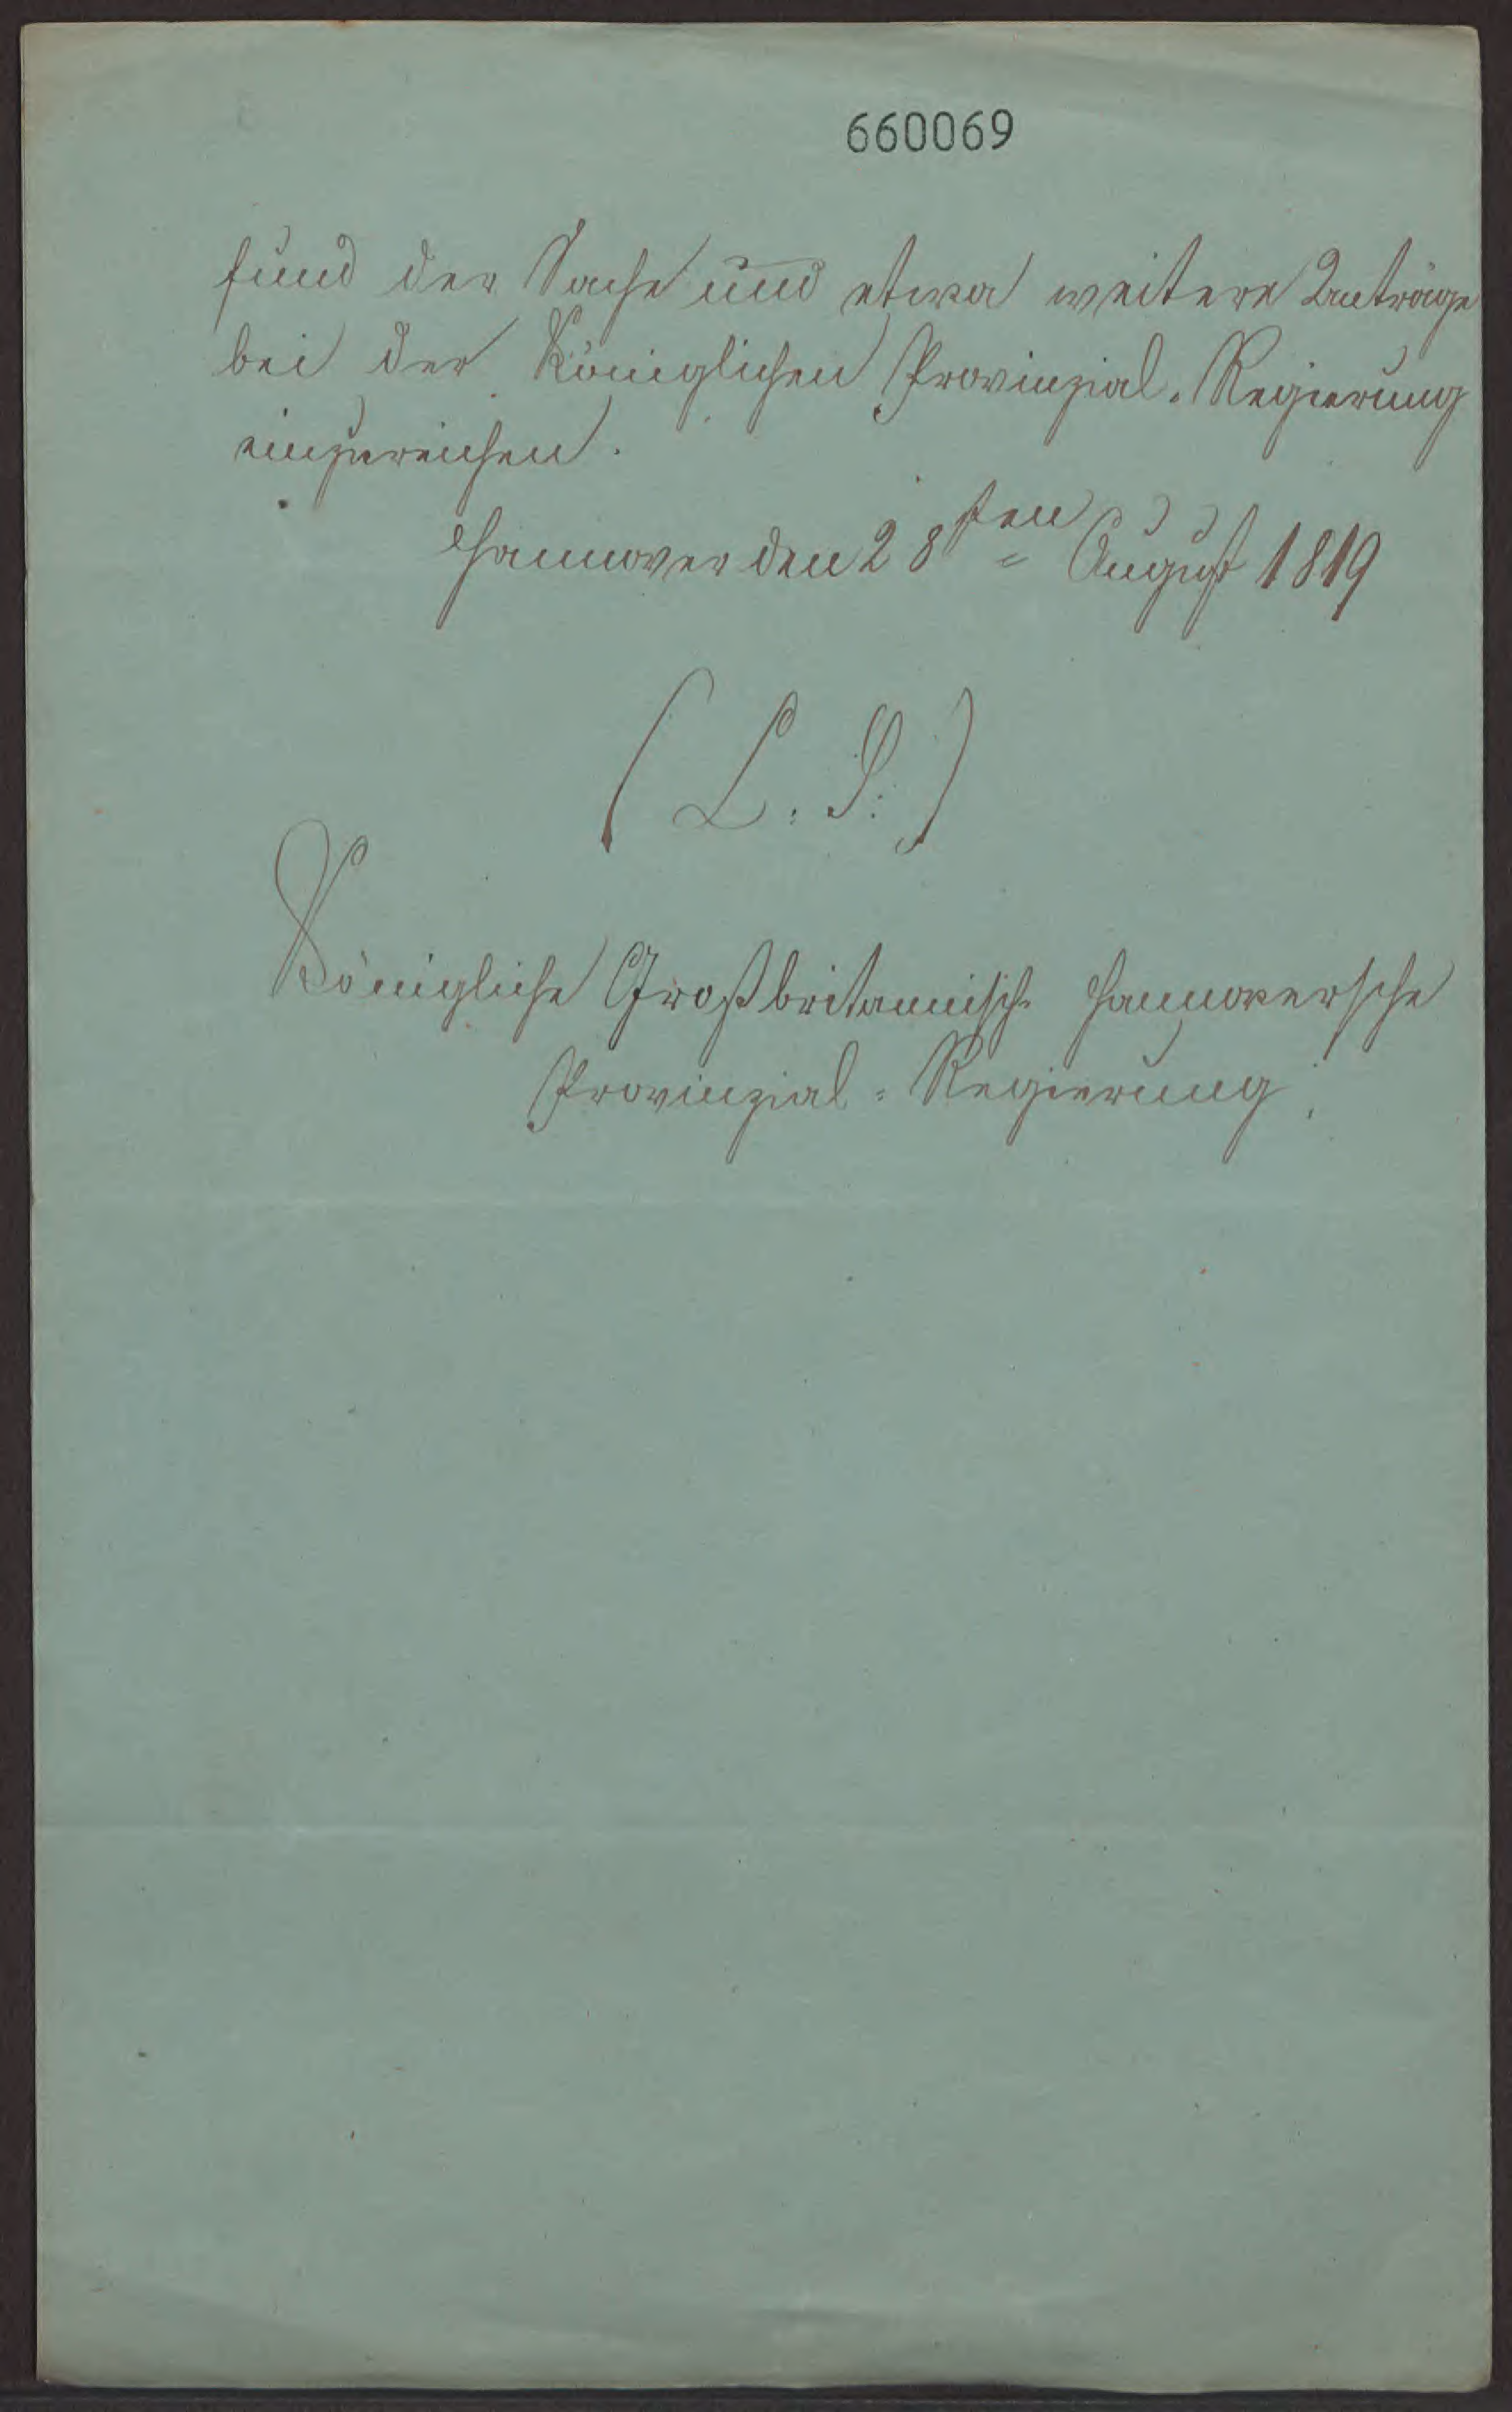 660069
fund der Sache und etwa weitere Anträge
bei der Königlichen Provinzial-Regierung
einzureichen.
Hannover den 28sten August 1819
(L. S.)
Königliche Großbritannisch Hannoversche
Provinzial-Regierung.